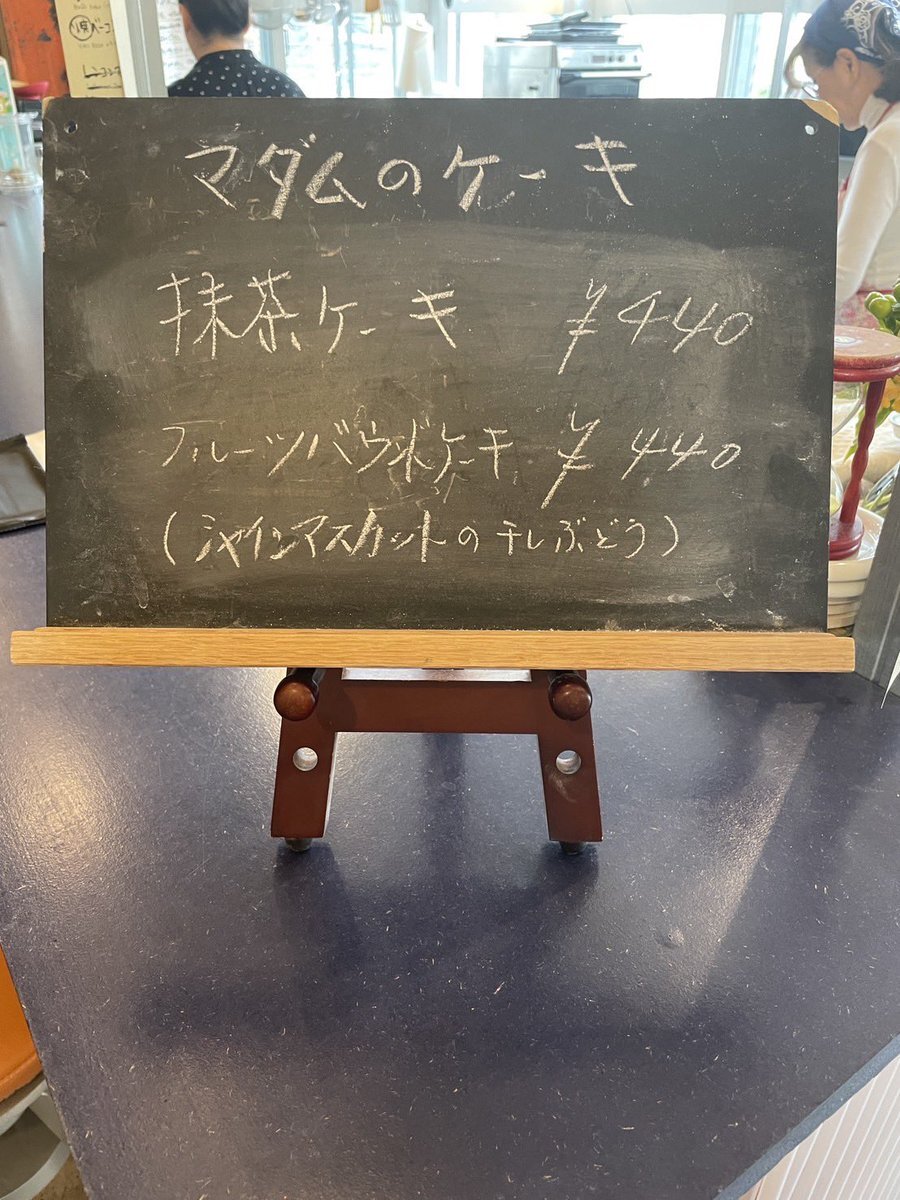 マダムのケーキ
抹茶ケーキ ¥440
フルーツパウンドケーキ ¥440
(シャインマスカットの干しぶどう)